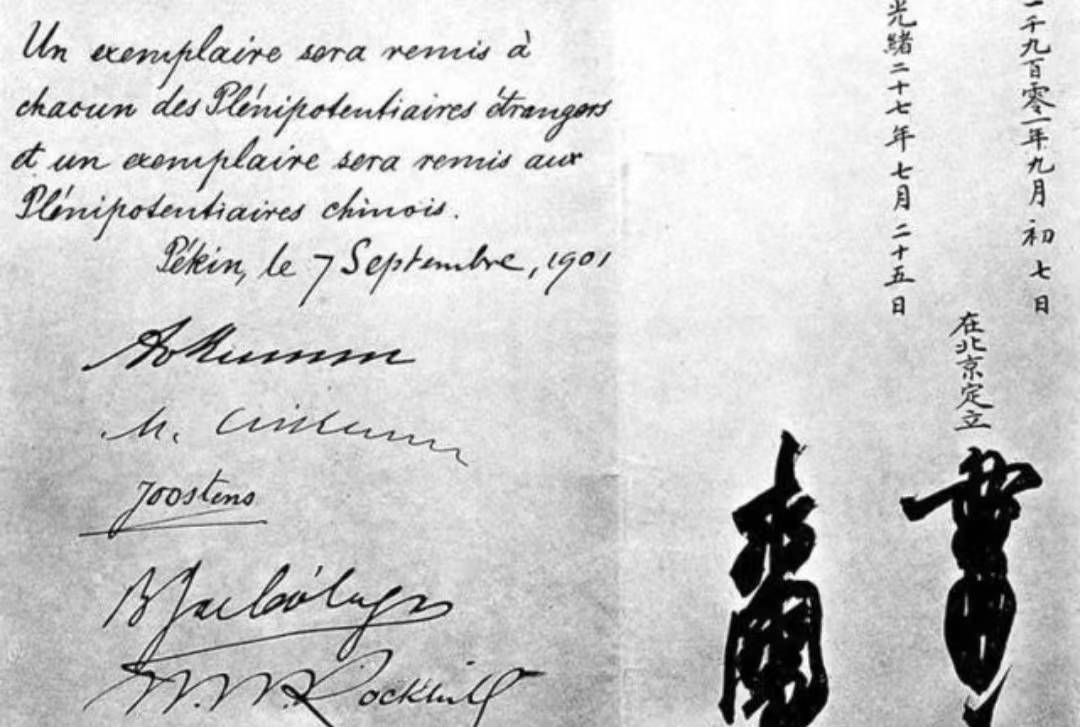 Un exemplaire sera remis à
chacun des Plénipotentiaires étrangers
et un exemplaire sera remis aux
Plénipotentiaires chinois.
Pékin, le 7 Septembre, 1901
Joostens
W. W. Rockhill
一千九百零一年九月初七日
在北京定立
光緒二十七年七月二十五日